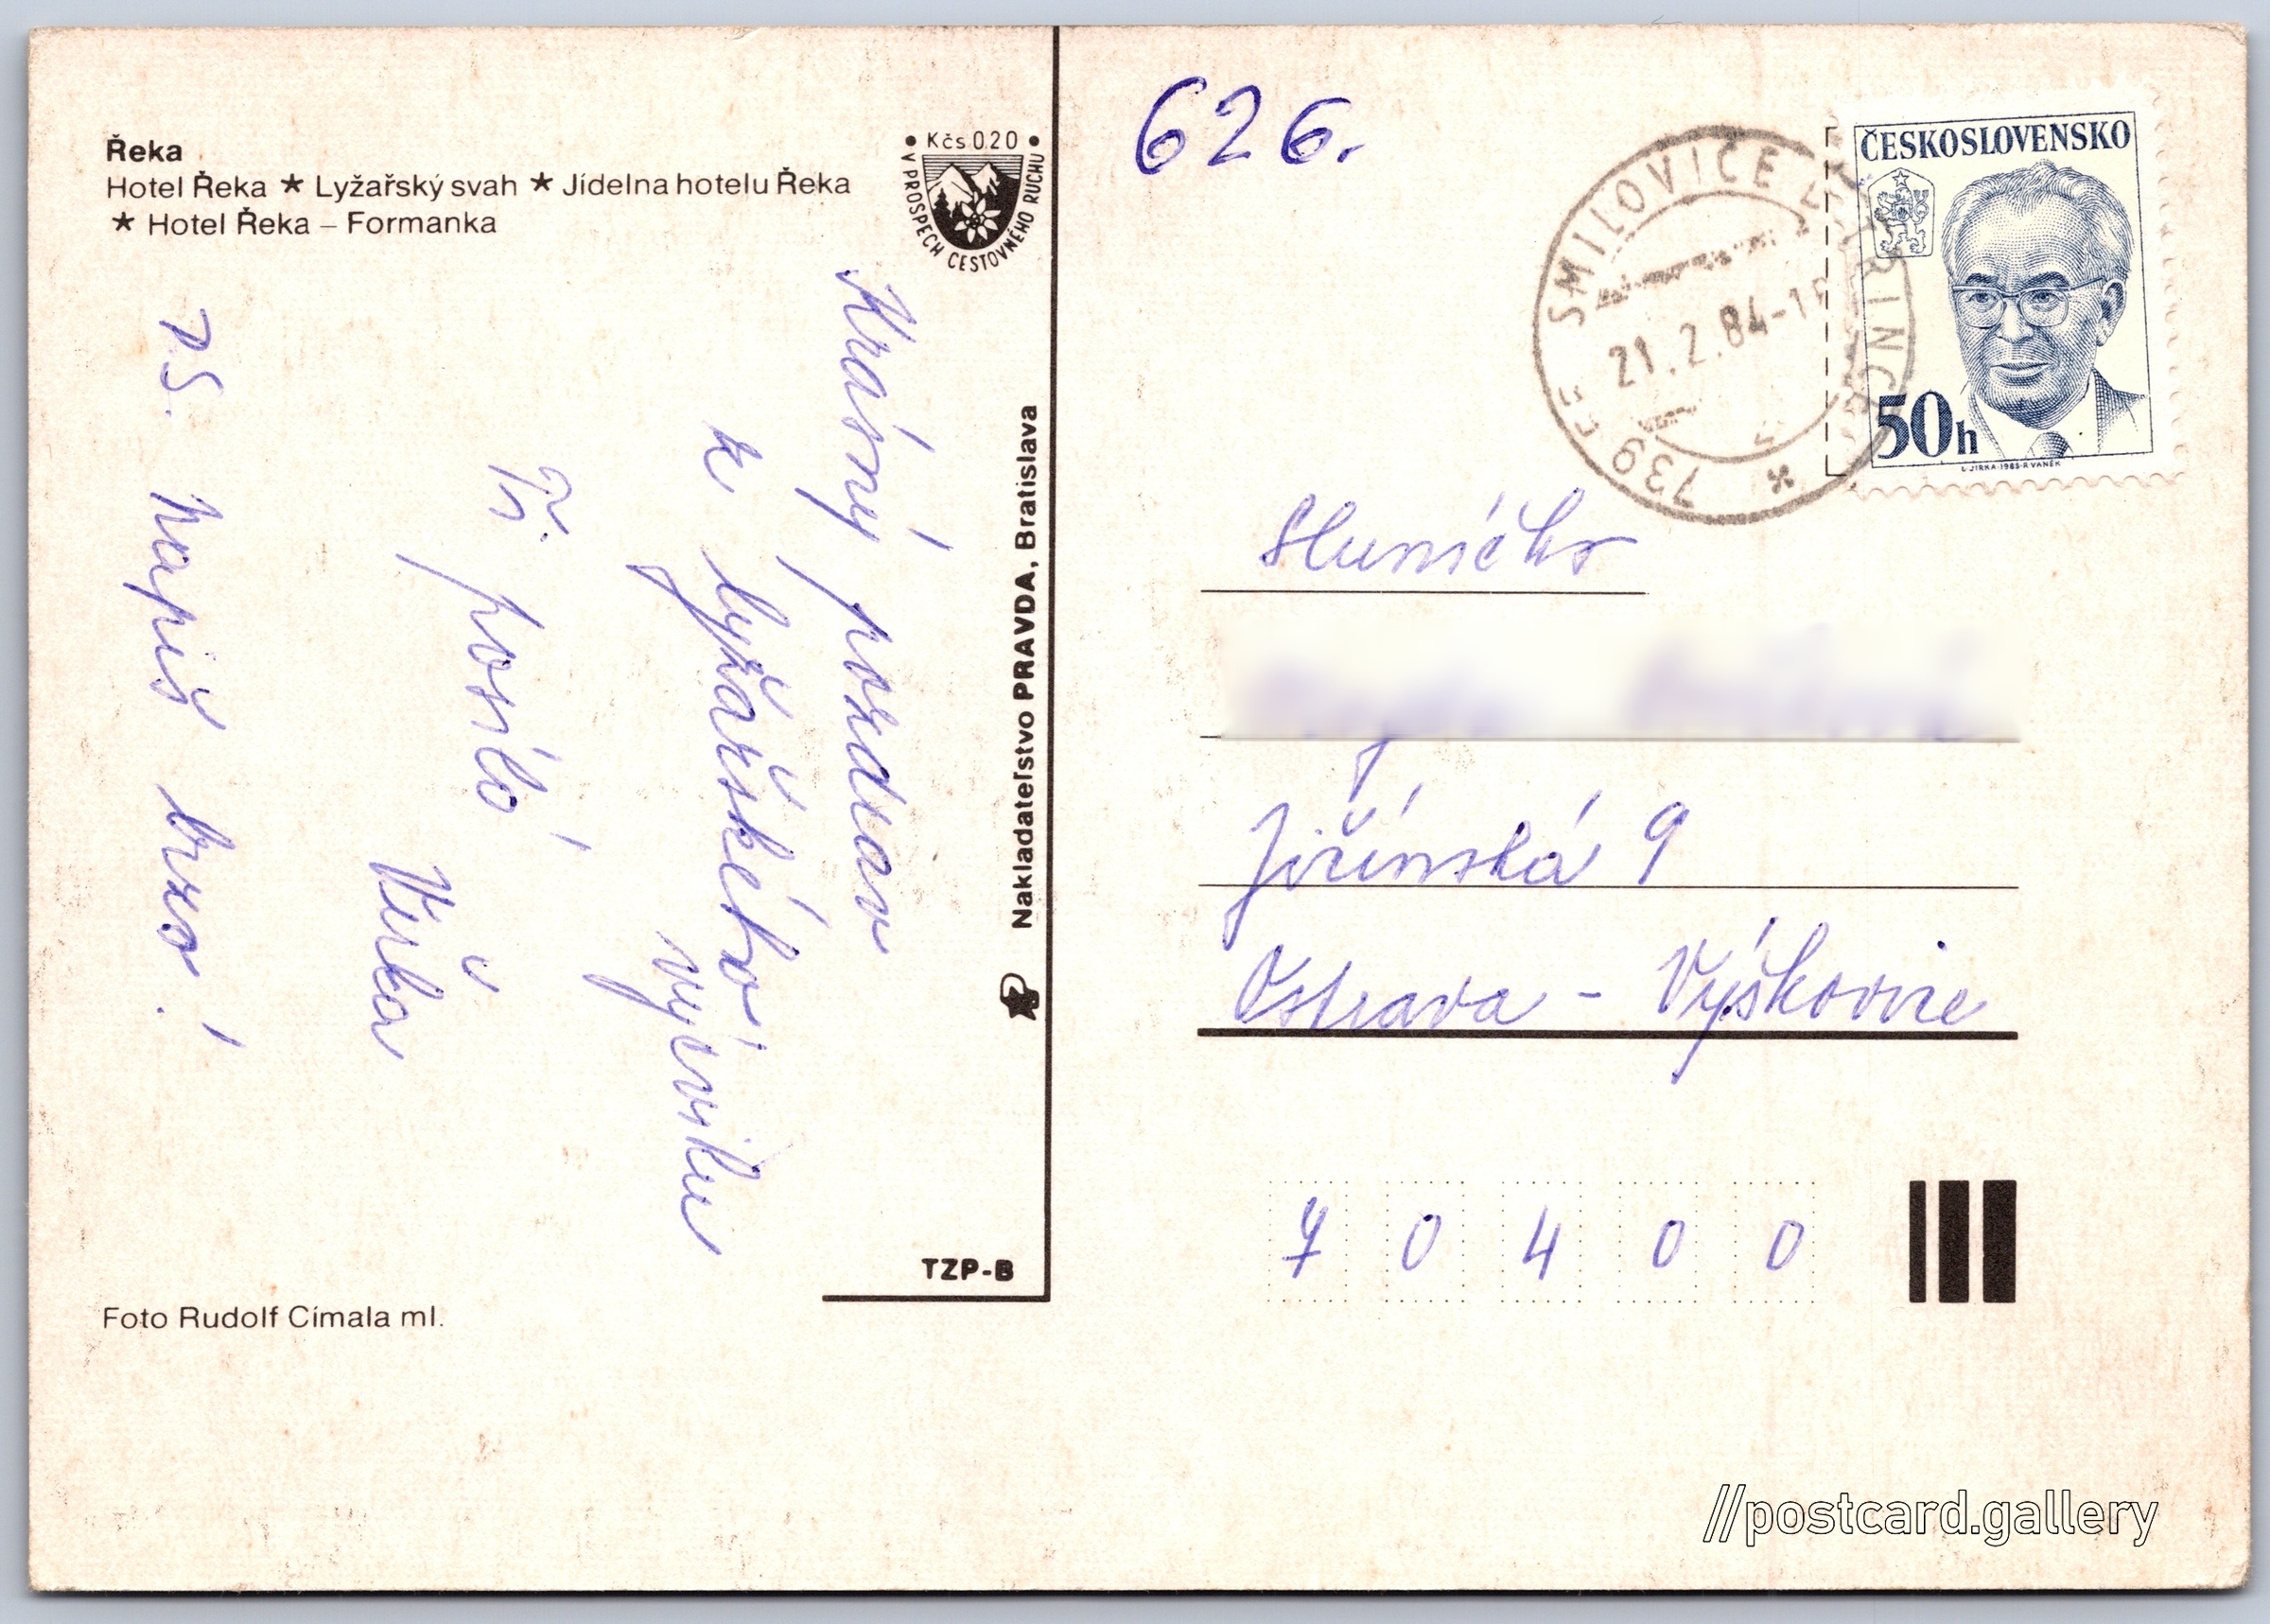 Řeka
Hotel Řeka ★ Lyžařský svah ★ Jídelna hotelu Řeka
★ Hotel Řeka – Formanka
• Kčs 0.20 •
V PROSPECH CESTOVNÉHO RUCHU
Krásný pozdrav
z lyžařského
výcviku
Ti posílá
Věrka
PS. Napiš brzo!
Nakladateľstvo PRAVDA, Bratislava
TZP-B
Foto Rudolf Címala ml.
626.
739 SMILOVICE U TŘINCE
21.2.84-15
ČESKOSLOVENSKO
50h
L. JIRKA-1983-R. VANĚK
Sluníčko
Jičínská 9
Ostrava - Výškovice
70400
//postcard.gallery